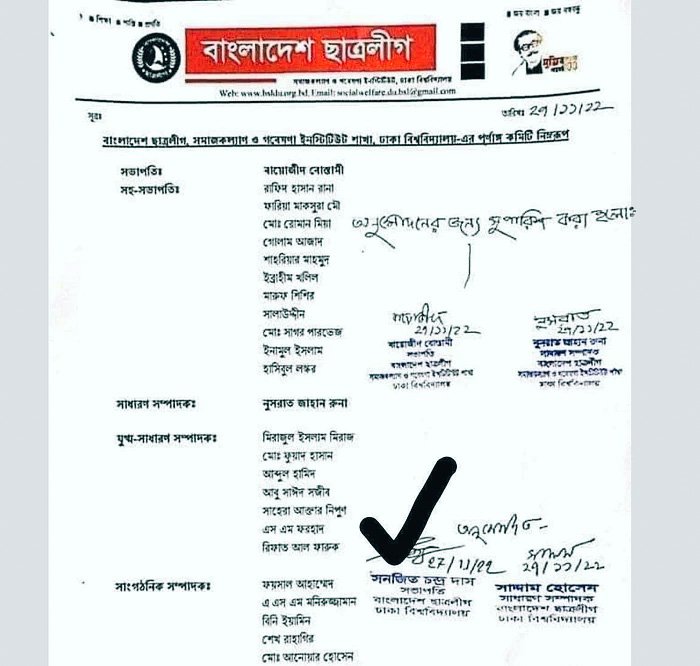 শিক্ষা ■ শান্তি ■ প্রগতি
■ জয় বাংলা ■ জয় বঙ্গবন্ধু
বাংলাদেশ ছাত্রলীগ
সমাজকল্যাণ ও গবেষণা ইনস্টিটিউট, ঢাকা বিশ্ববিদ্যালয়
Web: www.bsldu.org.bd, Email: socialwelfare.du.bsl@gmail.com
সূত্রঃ তারিখঃ 29/11/22
বাংলাদেশ ছাত্রলীগ, সমাজকল্যাণ ও গবেষণা ইনস্টিটিউট শাখা, ঢাকা বিশ্ববিদ্যালয়-এর পূর্ণাঙ্গ কমিটি নিম্নরূপ
সভাপতিঃ বায়োজীদ বোস্তামী
সহ-সভাপতিঃ রাফিদ হাসান রানা
ফারিয়া মাকসুরা মৌ
মোঃ রোমান মিয়া
অনুমোদনের জন্য সুপারিশ করা হলোঃ
গোলাম আজাদ
শাহরিয়ার মাহমুদ
ইব্রাহীম খলিল
মারুফ শিশির
সালাউদ্দীন
মোঃ সাগর পারভেজ
ইনামুল ইসলাম
হাসিবুল লস্কর
বায়োজীদ
29/11/22
বায়োজীদ বোস্তামী
সভাপতি
বাংলাদেশ ছাত্রলীগ
সমাজকল্যাণ ও গবেষণা ইনস্টিটিউট শাখা
ঢাকা বিশ্ববিদ্যালয়
নুসরাত
29/11/22
নুসরাত জাহান রুনা
সাধারণ সম্পাদক
বাংলাদেশ ছাত্রলীগ
সমাজকল্যাণ ও গবেষণা ইনস্টিটিউট শাখা
ঢাকা বিশ্ববিদ্যালয়
সাধারণ সম্পাদকঃ নুসরাত জাহান রুনা
যুগ্ম-সাধারণ সম্পাদকঃ মিরাজুল ইসলাম মিরাজ
মোঃ ফুয়াদ হাসান
আব্দুল হামিদ
আবু সাঈদ সজীব
সাহেরা আক্তার নিপুণ
এস এম ফরহাদ
রিফাত আল ফারুক
অনুমোদিত-
27/11/22
সনজিত চন্দ্র দাস
সভাপতি
বাংলাদেশ ছাত্রলীগ
ঢাকা বিশ্ববিদ্যালয়
সাদ্দাম
29/11/22
সাদ্দাম হোসেন
সাধারণ সম্পাদক
বাংলাদেশ ছাত্রলীগ
ঢাকা বিশ্ববিদ্যালয়
সাংগঠনিক সম্পাদকঃ ফয়সাল আহাম্মেদ
এ এস এম মনিরুজ্জামান
বিনি ইয়ামিন
শেখ রাহাগির
মোঃ আনোয়ার হোসেন